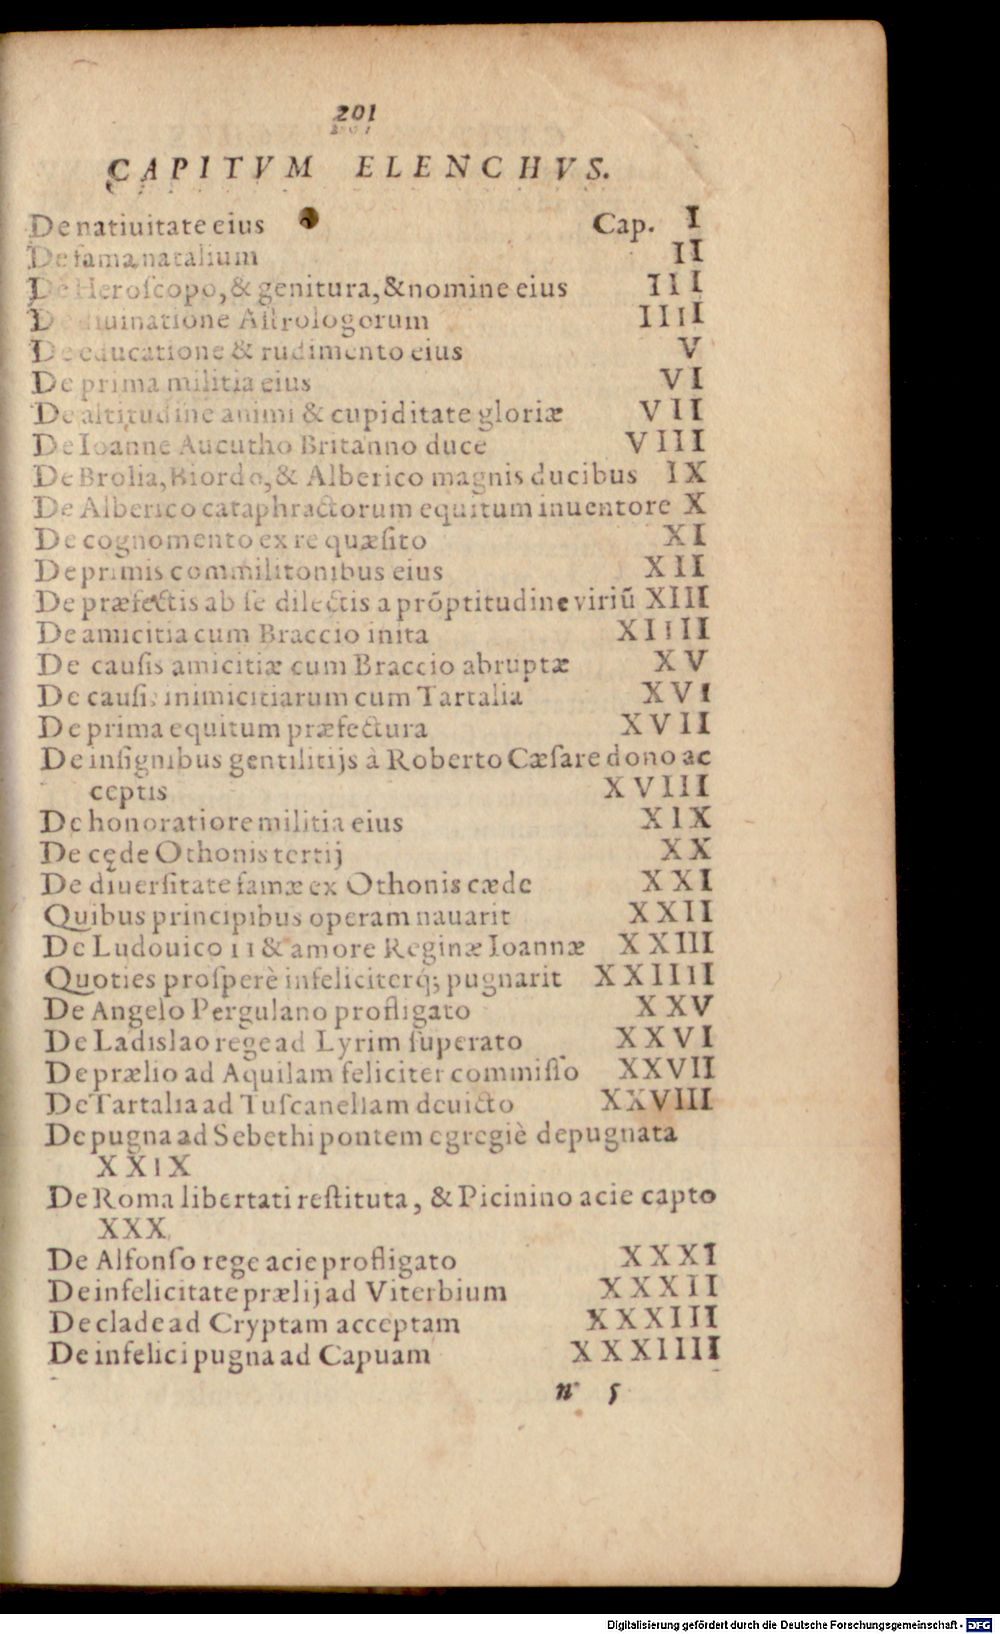 201
CAPITVM ELENCHVS.
De natiuitate eius Cap. I
De fama natalium II
De Heroſcopo, & genitura, & nomine eius III
De diuinatione Aſtrologorum IIII
De educatione & rudimento eius V
De prima militia eius VI
De altitudine animi & cupiditate gloriæ VII
De Ioanne Aucutho Britanno duce VIII
De Brolia, Biordo, & Alberico magnis ducibus IX
De Alberico cataphractorum equitum inuentore X
De cognomento ex re quæſito XI
De primis commilitonibus eius XII
De præfectis ab ſe dilectis a prõptitudine viriũ XIII
De amicitia cum Braccio inita XIIII
De cauſis amicitiæ cum Braccio abruptæ XV
De cauſis inimicitiarum cum Tartalia XVI
De prima equitum præfectura XVII
De inſignibus gentilitijs à Roberto Cæſare dono ac
ceptis XVIII
De honoratiore militia eius XIX
De cęde Othonis tertij XX
De diuerſitate famæ ex Othonis cæde XXI
Quibus principibus operam nauarit XXII
De Ludouico 11 & amore Reginæ Ioannæ XXIII
Quoties proſperè infeliciterq́; pugnarit XXIIII
De Angelo Pergulano profligato XXV
De Ladislao rege ad Lyrim ſuperato XXVI
De prælio ad Aquilam feliciter commiſſo XXVII
De Tartalia ad Tuſcanellam deuicto XXVIII
De pugna ad Sebethi pontem egregiè depugnata
XXIX
De Roma libertati reſtituta, & Picinino acie capto
XXX
De Alfonſo rege acie profligato XXXI
De infelicitate prælij ad Viterbium XXXII
De clade ad Cryptam acceptam XXXIII
De infelici pugna ad Capuam XXXIIII
n 5
Digitalisierung gefördert durch die Deutsche Forschungsgemeinschaft - DFG